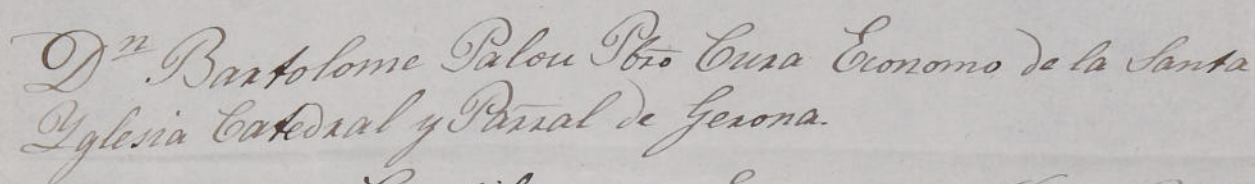 Dn Bartolome Palou Pbro Cura Economo de la Santa
Yglesia Catedral y Parral de Gerona.